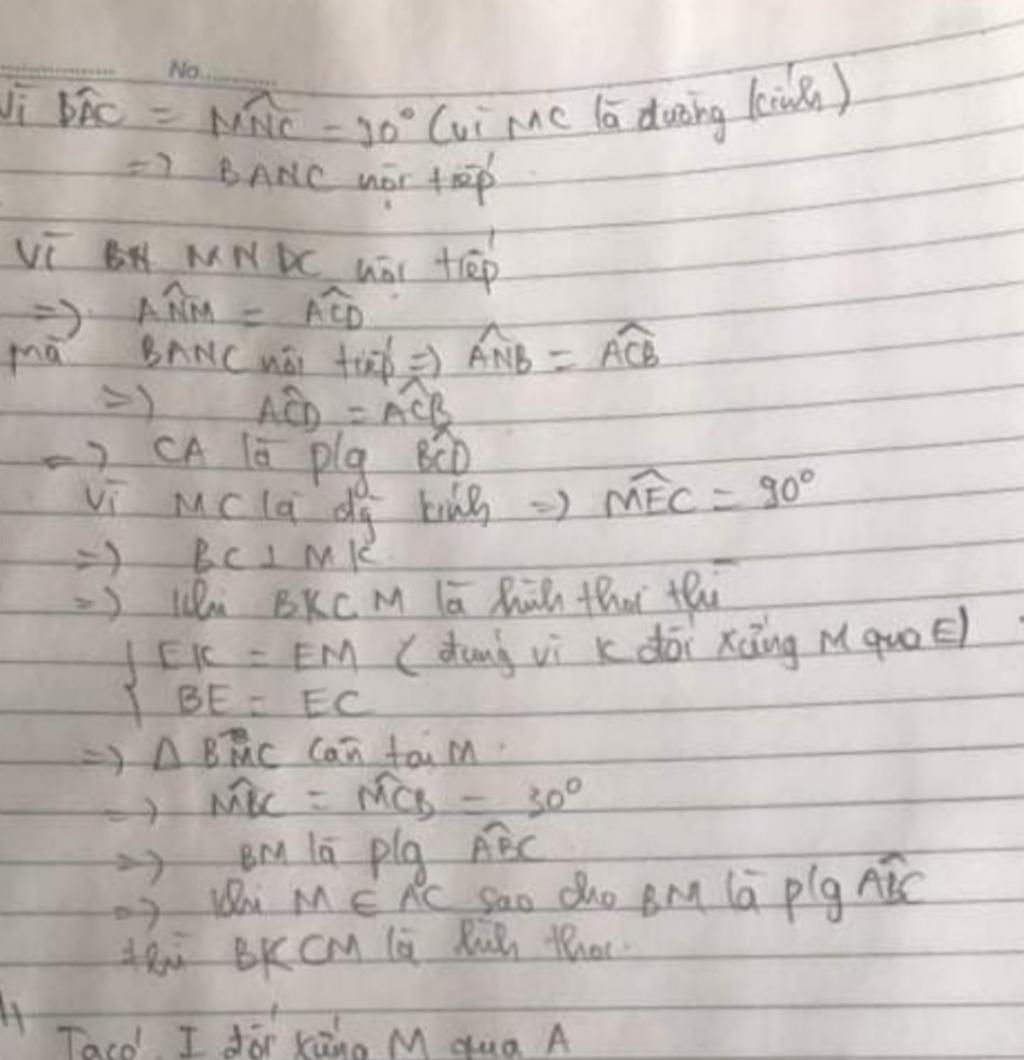 No............
Vì BÂC = MN̂C = 90° (vì MC là đường kính)
=> BANC nội tiếp
Vì MNDC nội tiếp
=> AN̂M = AĈD
mà BANC nội tiếp => AN̂B = AĈB
=> AĈD = AĈB
=> CA là p/g BĈD
Vì MC là đg kính => MÊC = 90°
=> BC ⊥ MK
=> Khi BKCM là hình thoi thì
{ EK = EM (đúng vì K đối xứng M qua E)
BE = EC
=> Δ BMC cân tại M.
=> MB̂C = MĈB = 30°
=> BM là p/g AB̂C
=> Khi M ∈ AC sao cho BM là p/g AB̂C
thì BKCM là hình thoi.
Ta có I đối xứng M qua A